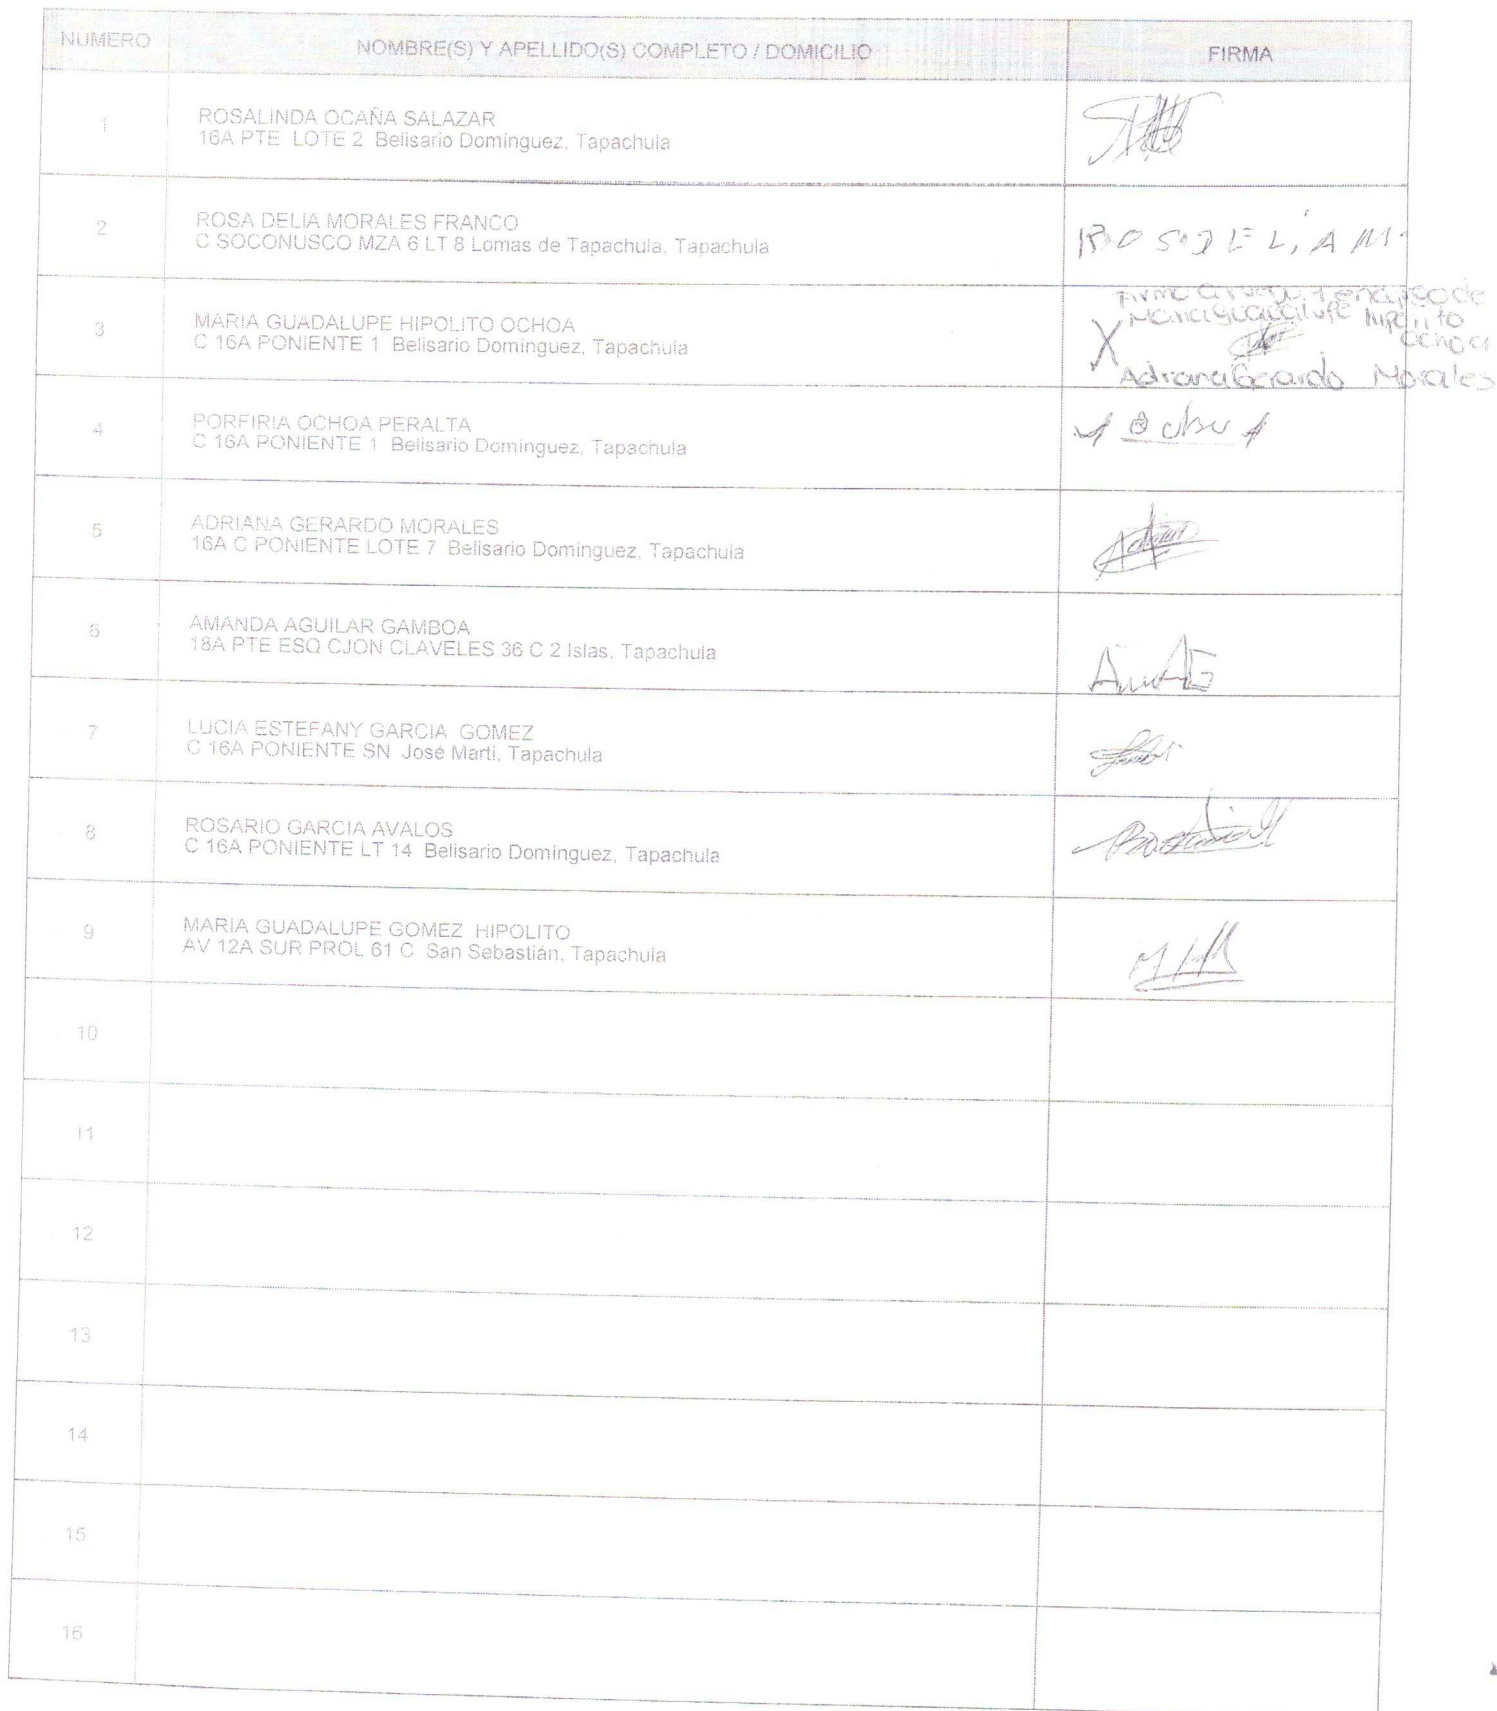 NUMERO NOMBRE(S) Y APELLIDO(S) COMPLETO / DOMICILIO FIRMA
1 ROSALINDA OCAÑA SALAZAR
16A PTE LOTE 2 Belisario Domínguez, Tapachula
2 ROSA DELIA MORALES FRANCO
C SOCONUSCO MZA 6 LT 8 Lomas de Tapachula, Tapachula
ROSDELIAM
3 MARIA GUADALUPE HIPOLITO OCHOA
C 16A PONIENTE 1 Belisario Domínguez, Tapachula
de
Maria guadalupe hipolito
ochoa
X
Adriana Gerardo Morales
4 PORFIRIA OCHOA PERALTA
C 16A PONIENTE 1 Belisario Domínguez, Tapachula
5 ADRIANA GERARDO MORALES
16A C PONIENTE LOTE 7 Belisario Domínguez, Tapachula
6 AMANDA AGUILAR GAMBOA
18A PTE ESQ CJON CLAVELES 36 C 2 Islas, Tapachula
7 LUCIA ESTEFANY GARCIA GOMEZ
C 16A PONIENTE SN José Martí, Tapachula
8 ROSARIO GARCIA AVALOS
C 16A PONIENTE LT 14 Belisario Domínguez, Tapachula
9 MARIA GUADALUPE GOMEZ HIPOLITO
AV 12A SUR PROL 61 C San Sebastián, Tapachula
10
11
12
13
14
15
16